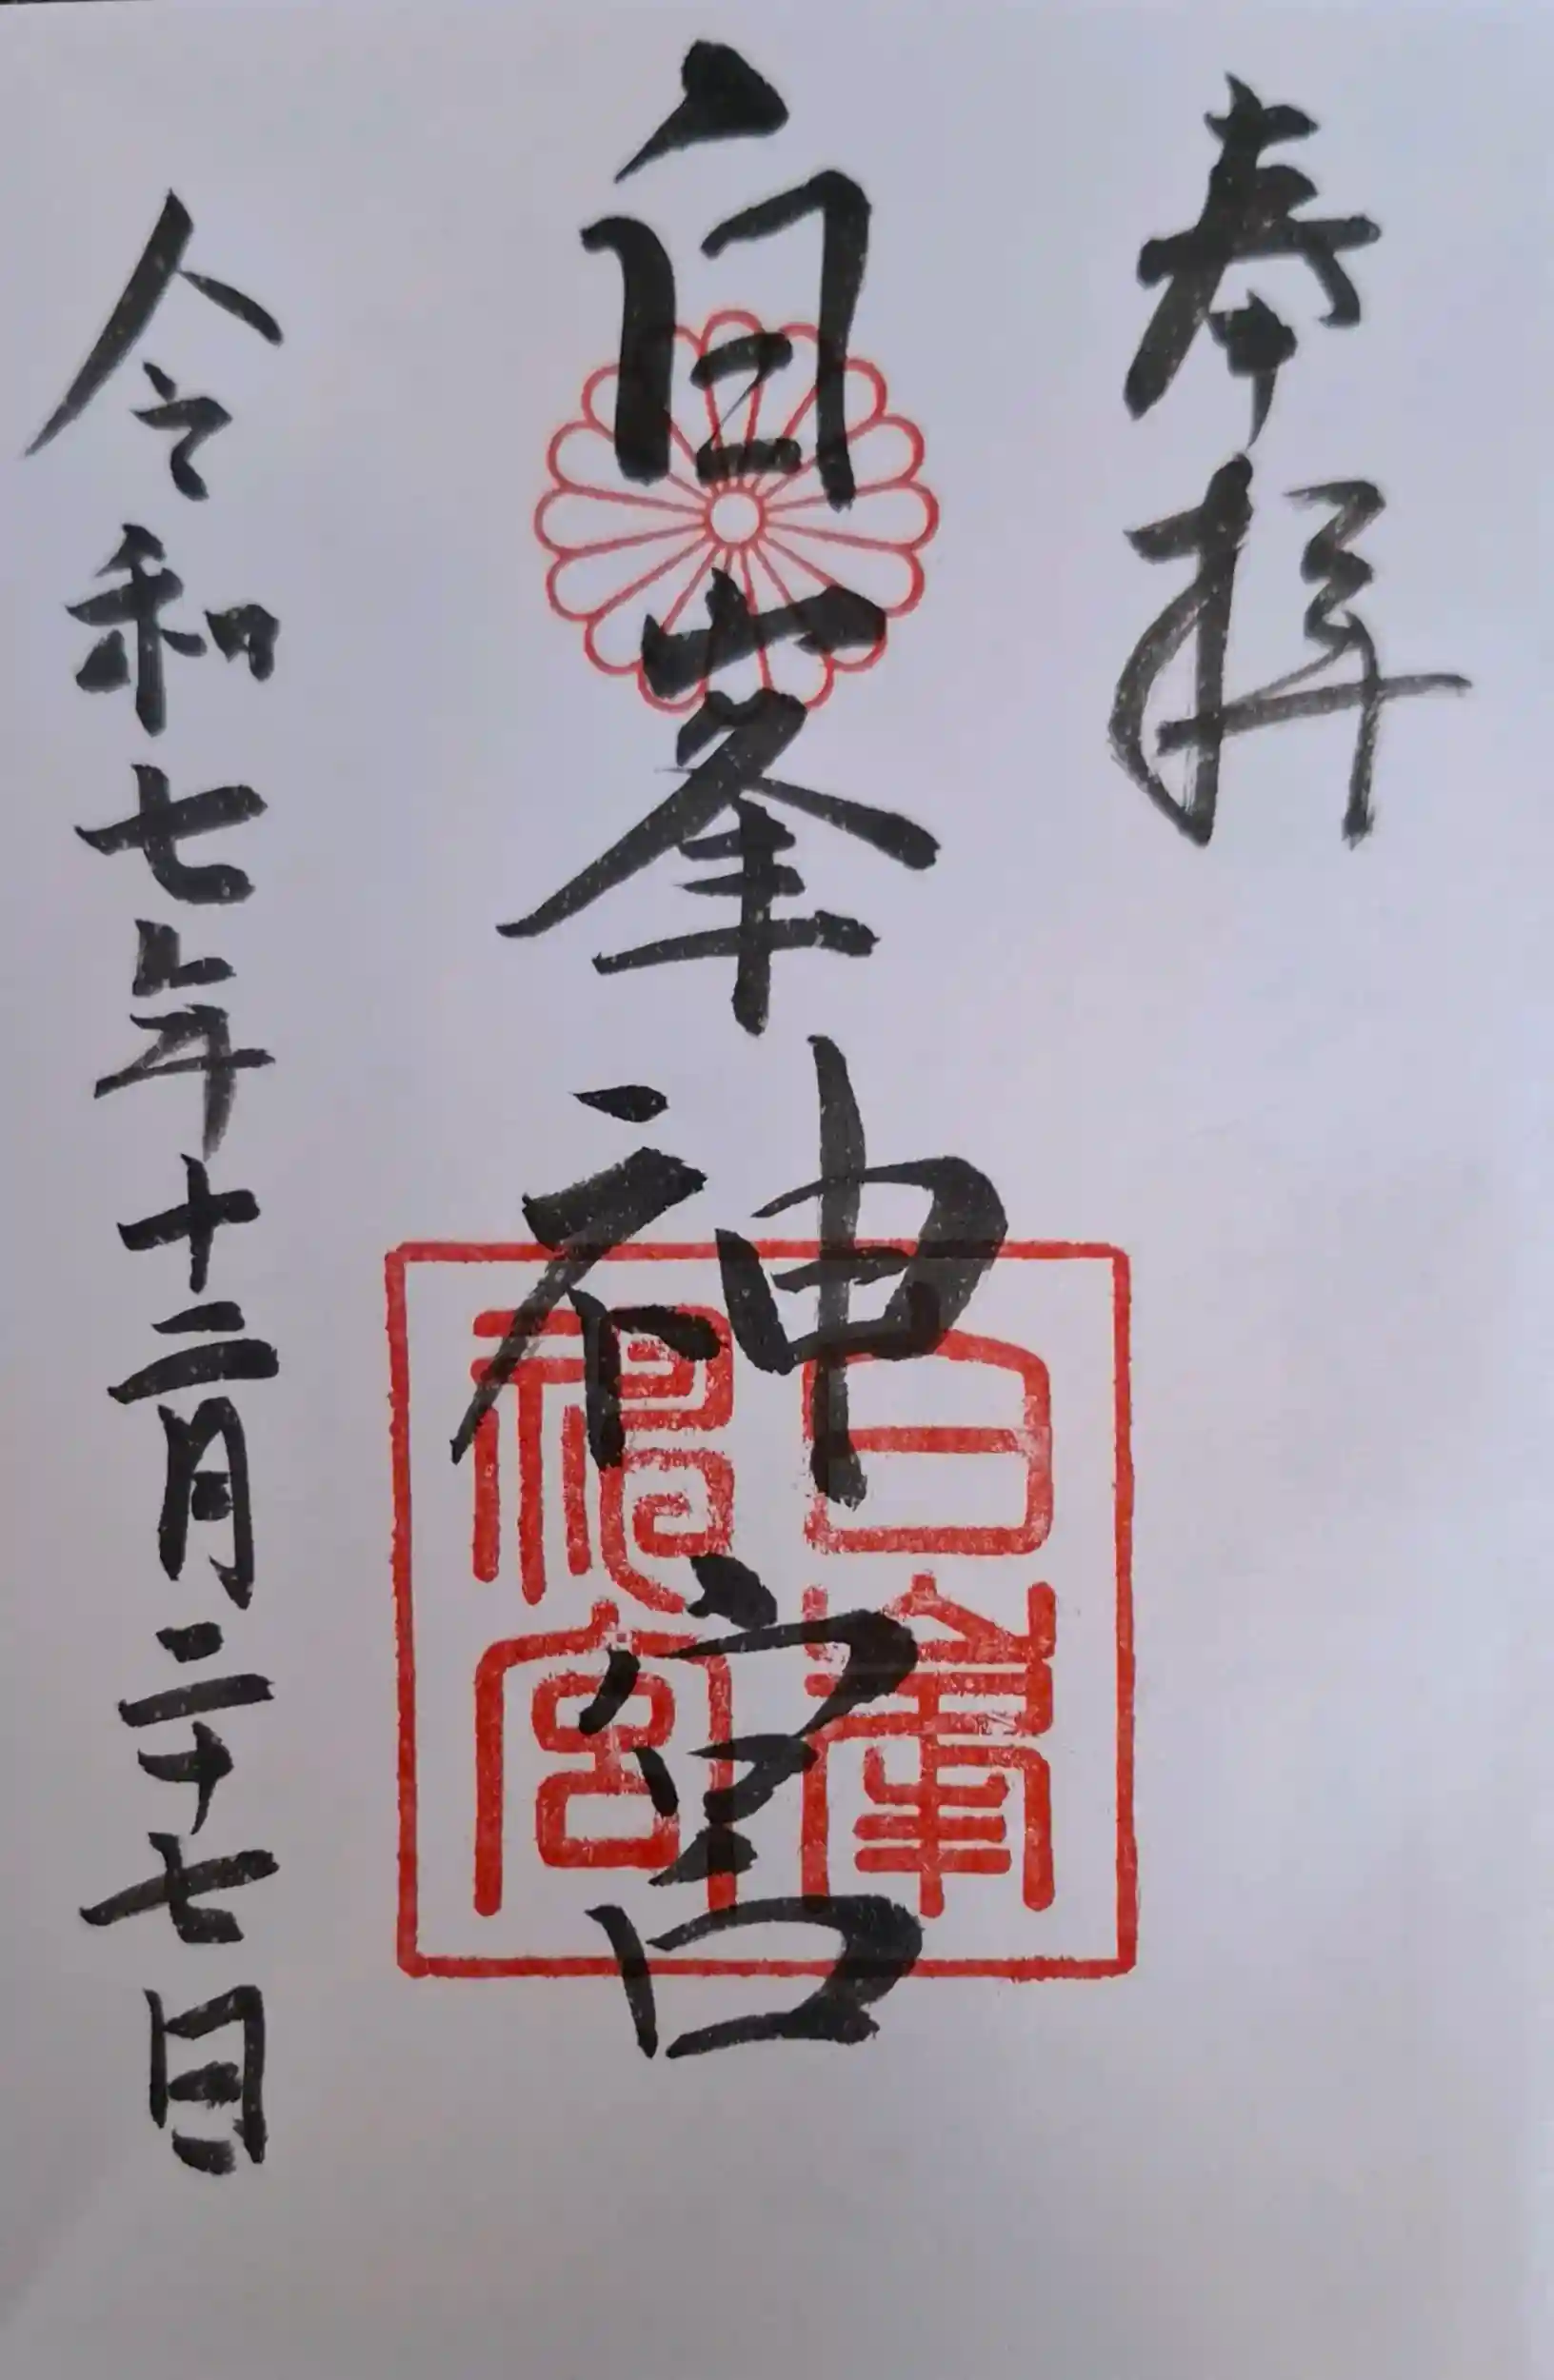 奉拝
白峯神宮
白峯
神宮
令和七年十二月二十七日